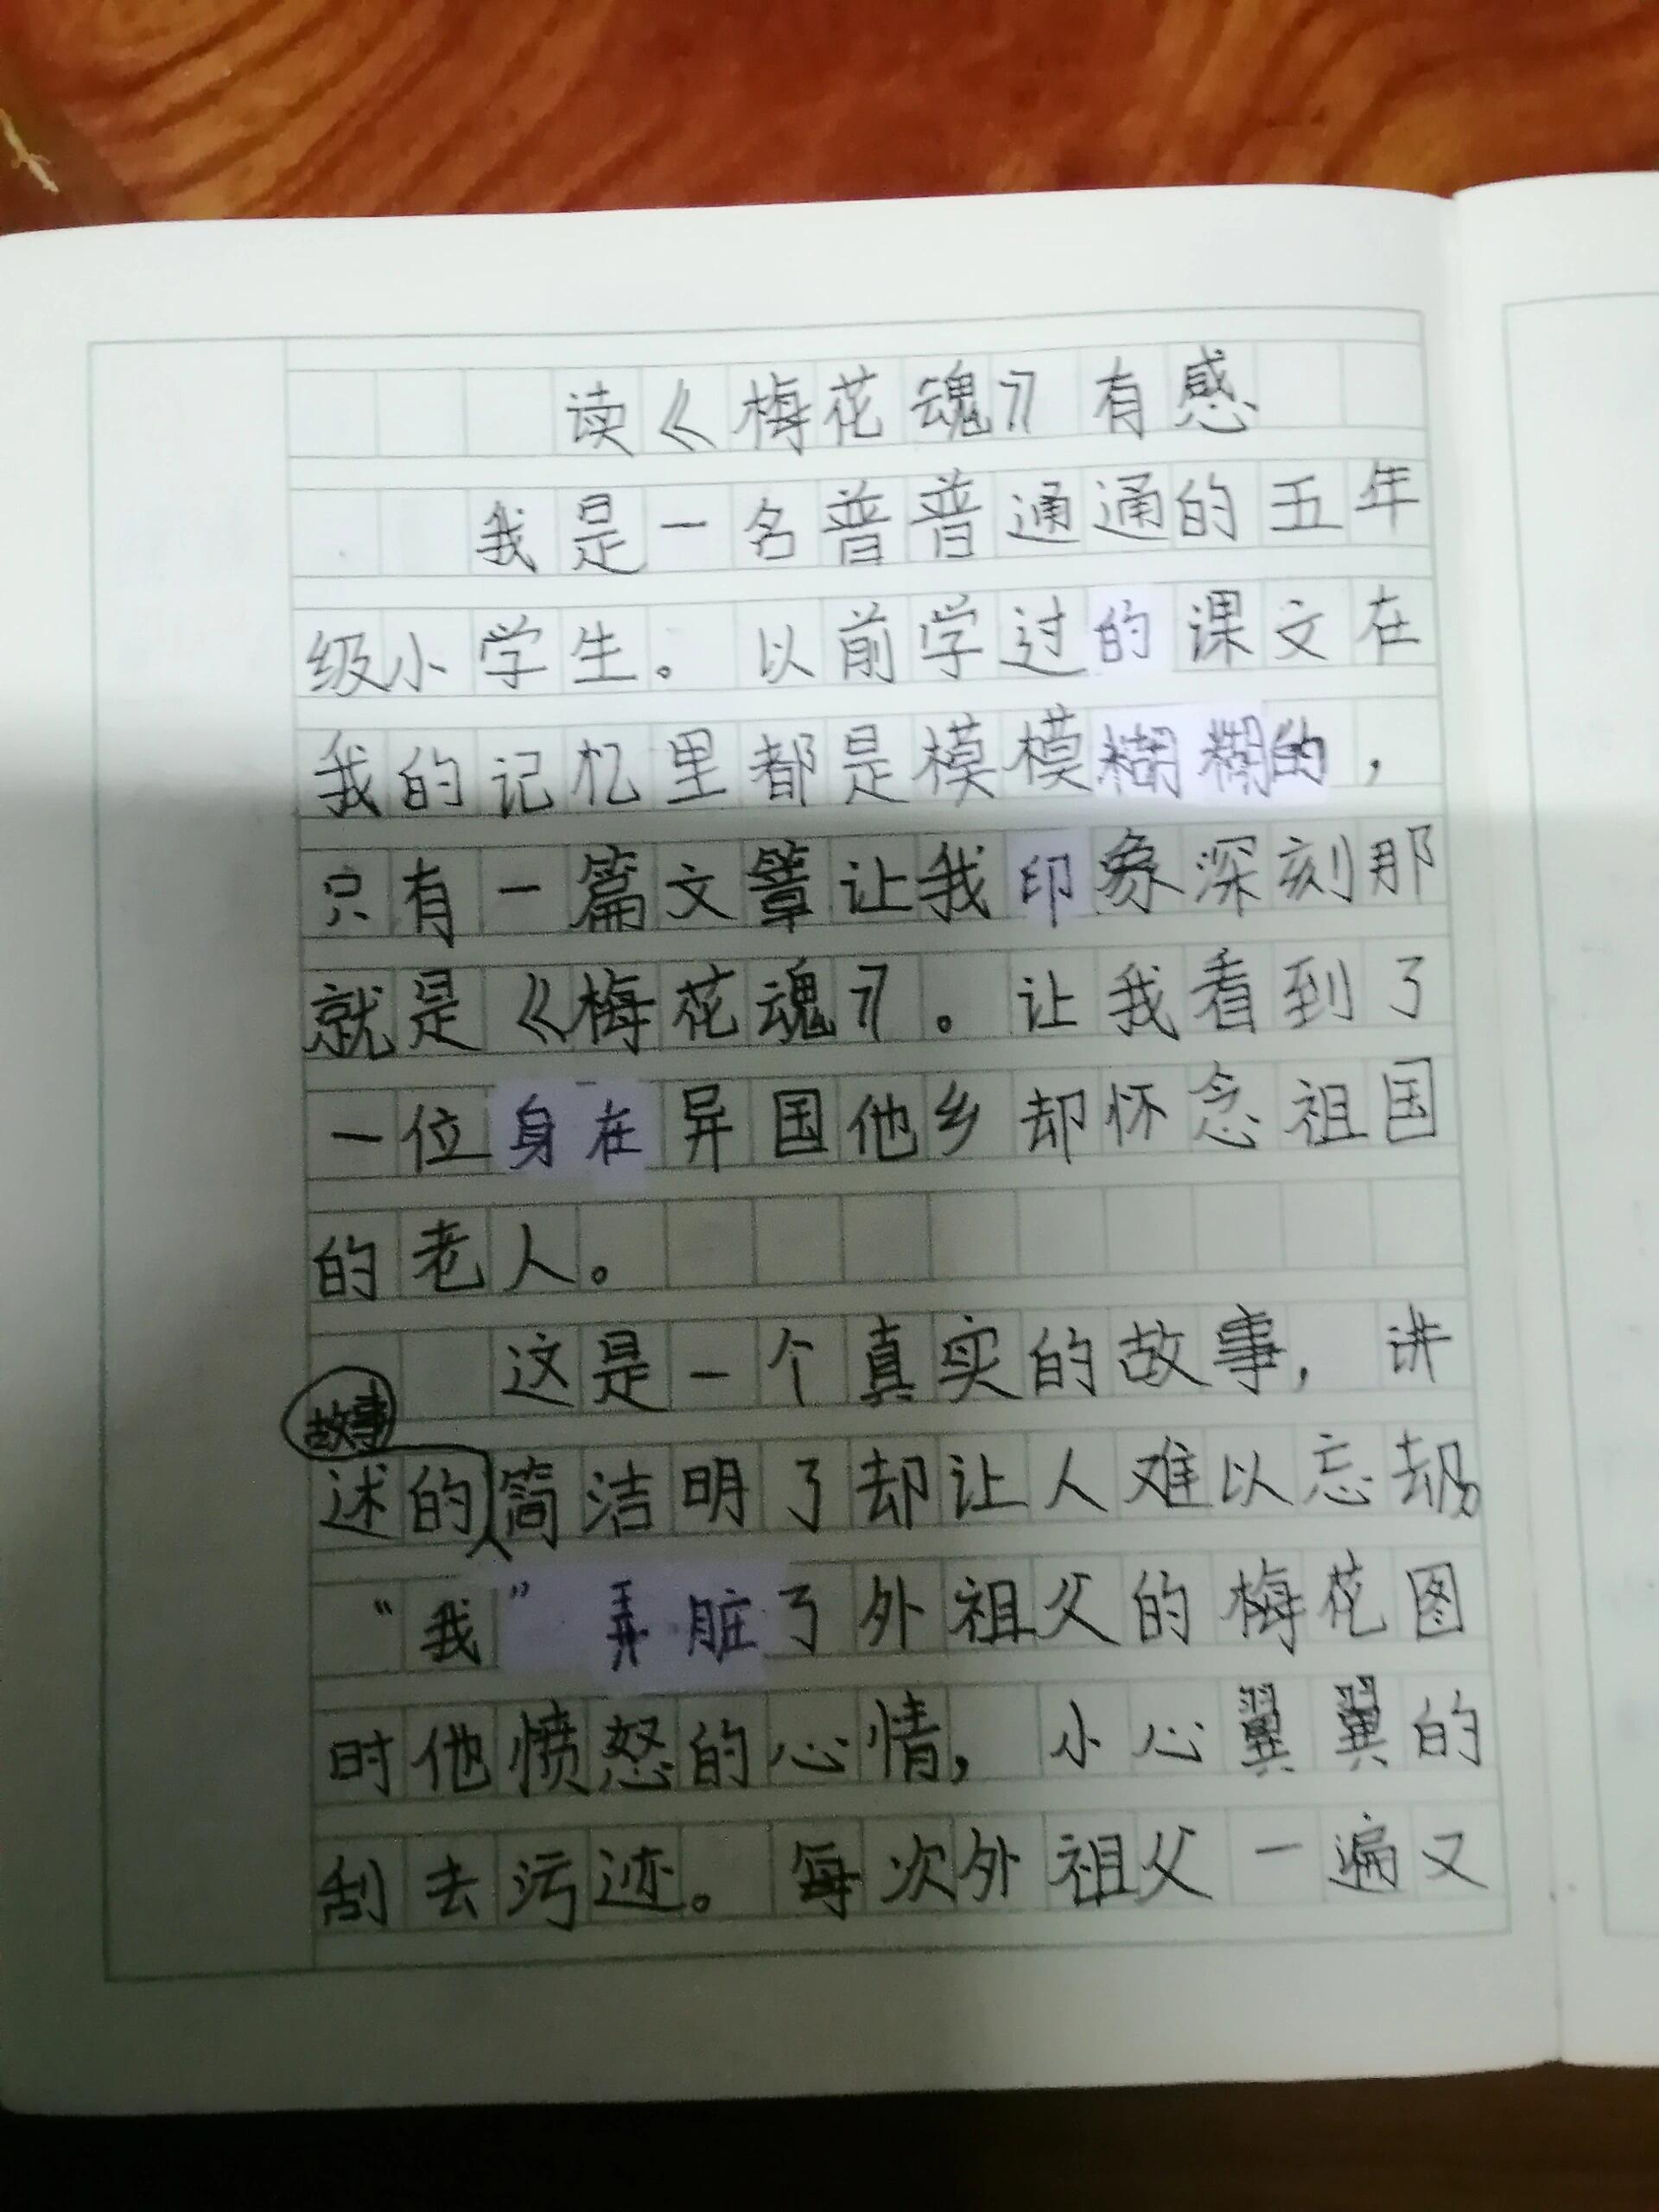 读《梅花魂》有感
我是一名普普通通的五年
级小学生。以前学过的课文在
我的记忆里都是模模糊糊的，
只有一篇文章让我印象深刻那
就是《梅花魂》。让我看到了
一位身在异国他乡却怀念祖国
的老人。
这是一个真实的故事，讲
故事
述的简洁明了却让人难以忘却。
“我”弄脏了外祖父的梅花图
时他愤怒的心情，小心翼翼的
刮去污迹。每次外祖父一遍又